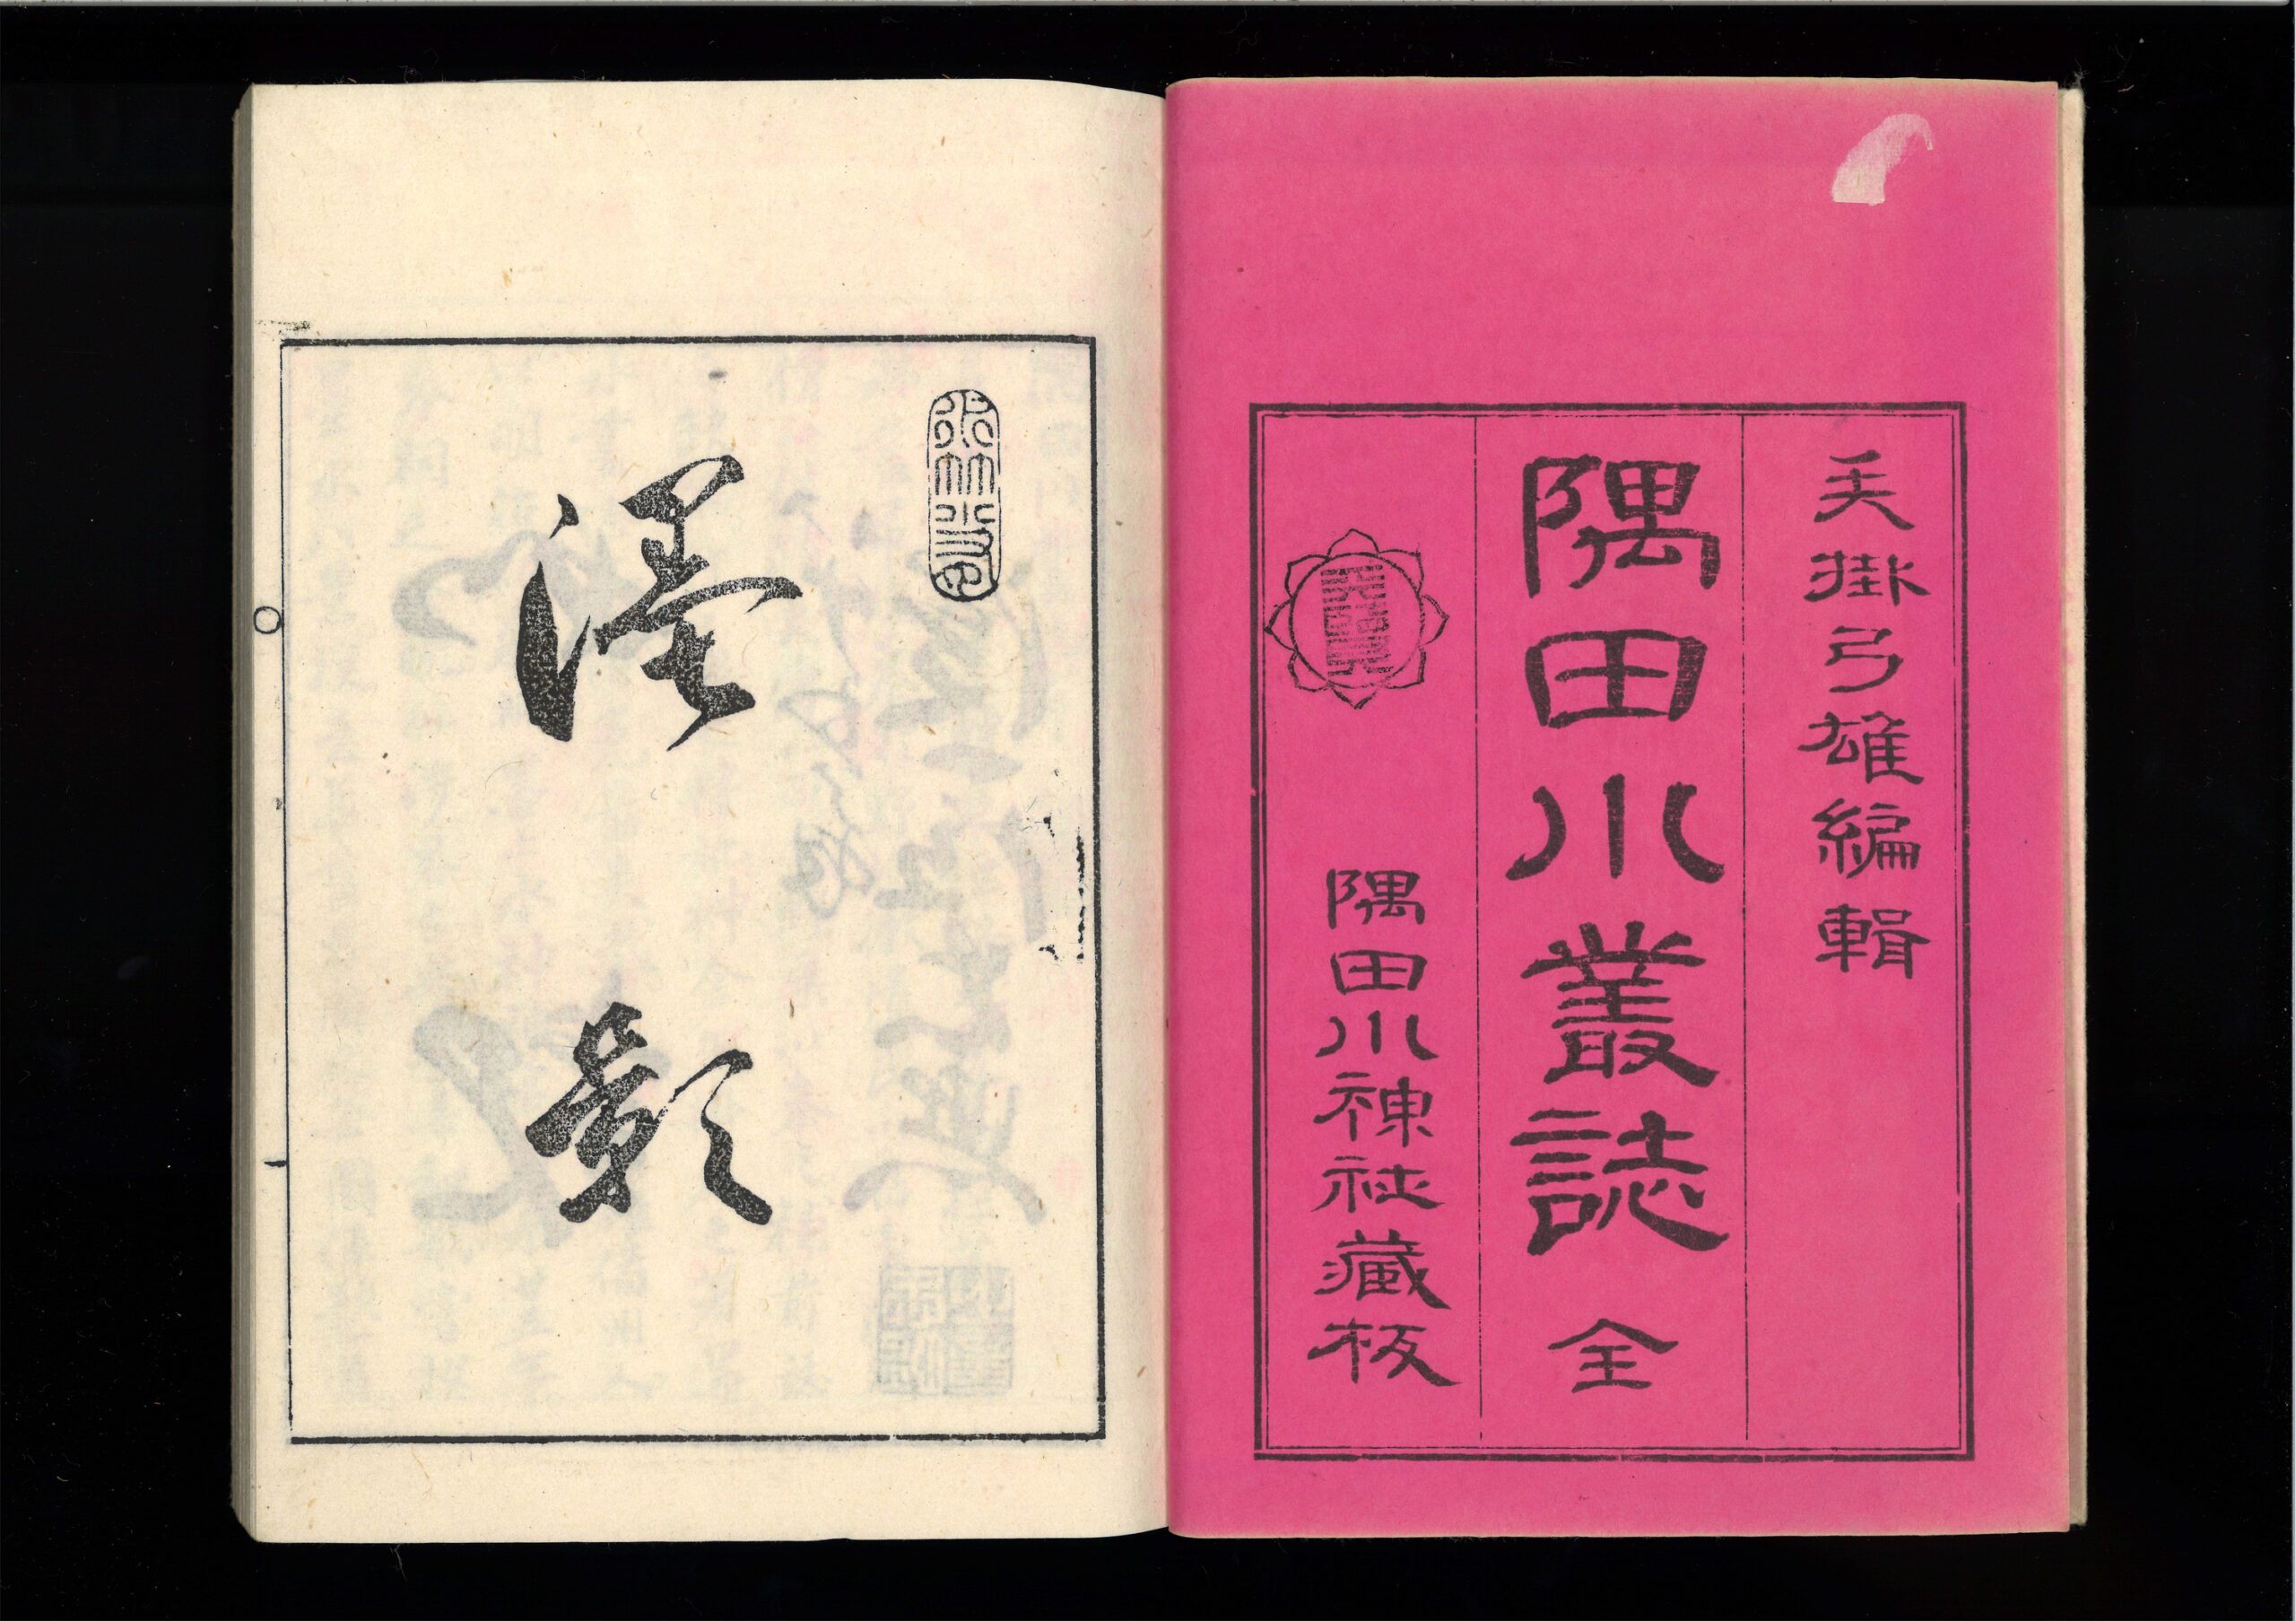 矢掛弓雄編輯
隅田川叢誌 全
隅田川神社藏板
澤影